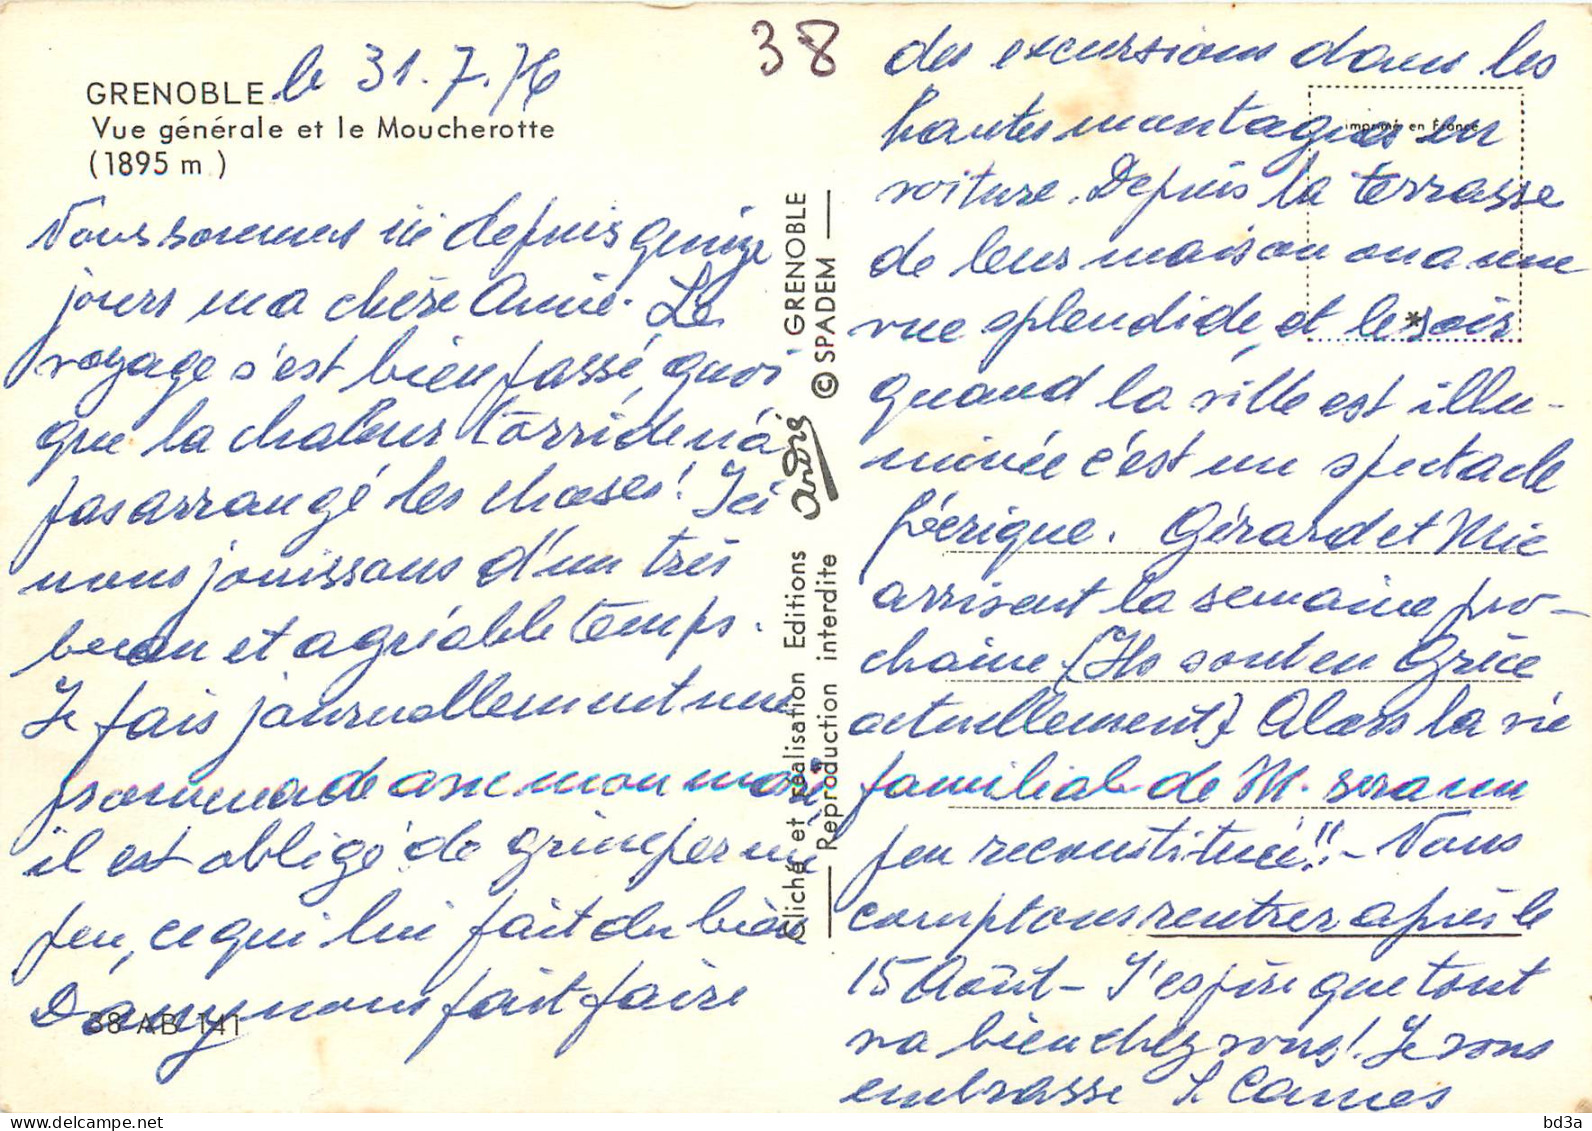 38
GRENOBLE le 31.7.76
Vue générale et le Moucherotte
(1895 m)
Nous sommes ici depuis quinze
jours ma chère Amie. Le
voyage s'est bien passé, quoi
que la chaleur torride n'a
pas arrangé les choses! Ici
nous jouissons d'un très
beau et agréable temps.
Je fais journellement une
promenade avec mon mari
il est obligé de grimper un
peu, ce qui lui fait du bien
Dany nous fait faire
38 AB 141
Cliché et réalisation Editions André GRENOBLE
Reproduction interdite © SPADEM
imprimé en France
*
des excursions dans les
hautes montagnes en
voiture. Depuis la terrasse
de leur maison on a une
vue splendide, et le soir
quand la ville est illu-
minée c'est un spectacle
féerique. Gérard et Mic
arrivent la semaine pro-
chaine (Ils sont en Grèce
actuellement) Alors la vie
familiale de M. sera un
peu reconstituée!! - Nous
comptons rentrer après le
15 Août - J'espère que tout
va bien chez vous! Je vous
embrasse S. Cames
bd3a